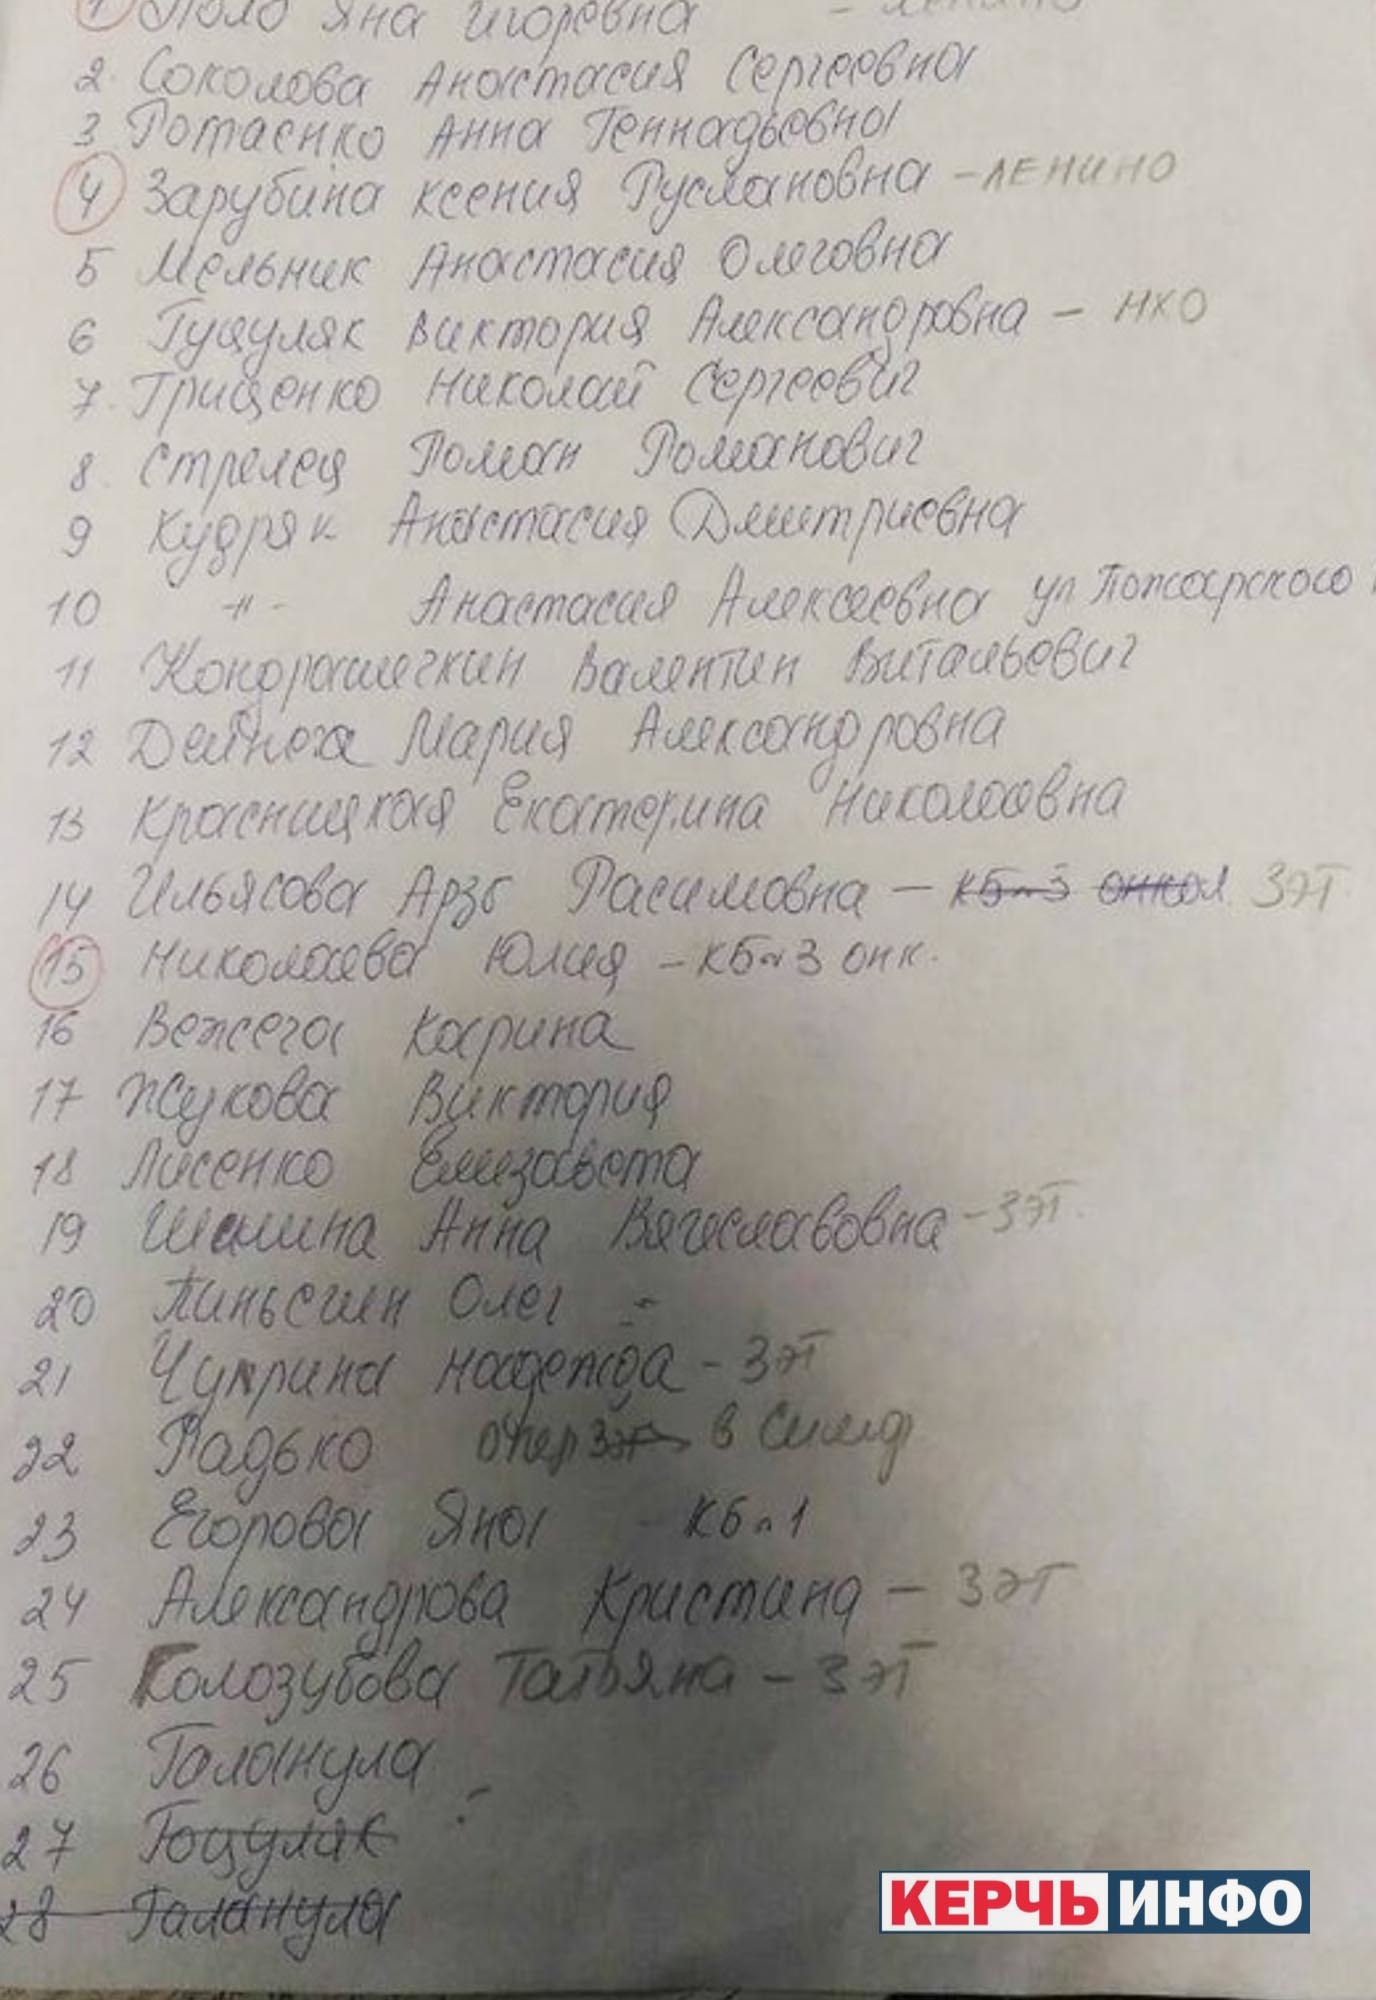 1 Поло Яна Игоревна - Ленино
2. Соколова Анастасия Сергеевна
3 Ротаенко Анна Геннадьевна
4 Зарубина Ксения Руслановна - ЛЕНИНО
5 Мельник Анастасия Олеговна
6 Гуцуляк Виктория Александровна - НХО
7. Грищенко Николай Сергеевич
8. Стрелец Роман Романович
9 Кудряк Анастасия Дмитриевна
10 -"- Анастасия Алексеевна ул Пожарского
11 Кондрашечкин Валентин Витальевич
12 Дейнега Мария Александровна
13 Красницкая Екатерина Николаевна
14 Ильясова Арзы Расимовна - КБ№3 онкол 3эт
15 Николаева Юлия - КБ№3 онк.
16 Вежега Карина
17 Жукова Виктория
18 Лисенко Елизавета
19 Шишина Анна Вячеславовна - 3эт.
20 Пиньгин Олег -
21 Чукрина Надежда - 3эт
22 Радько опер 3эт в Симф
23 Егорова Яна - КБ№1
24 Александрова Кристина - 3эт
25 Колозубова Татьяна - 3эт
26 Галанула
27 Гоцуляк
28 Галанула
КЕРЧЬИНФО